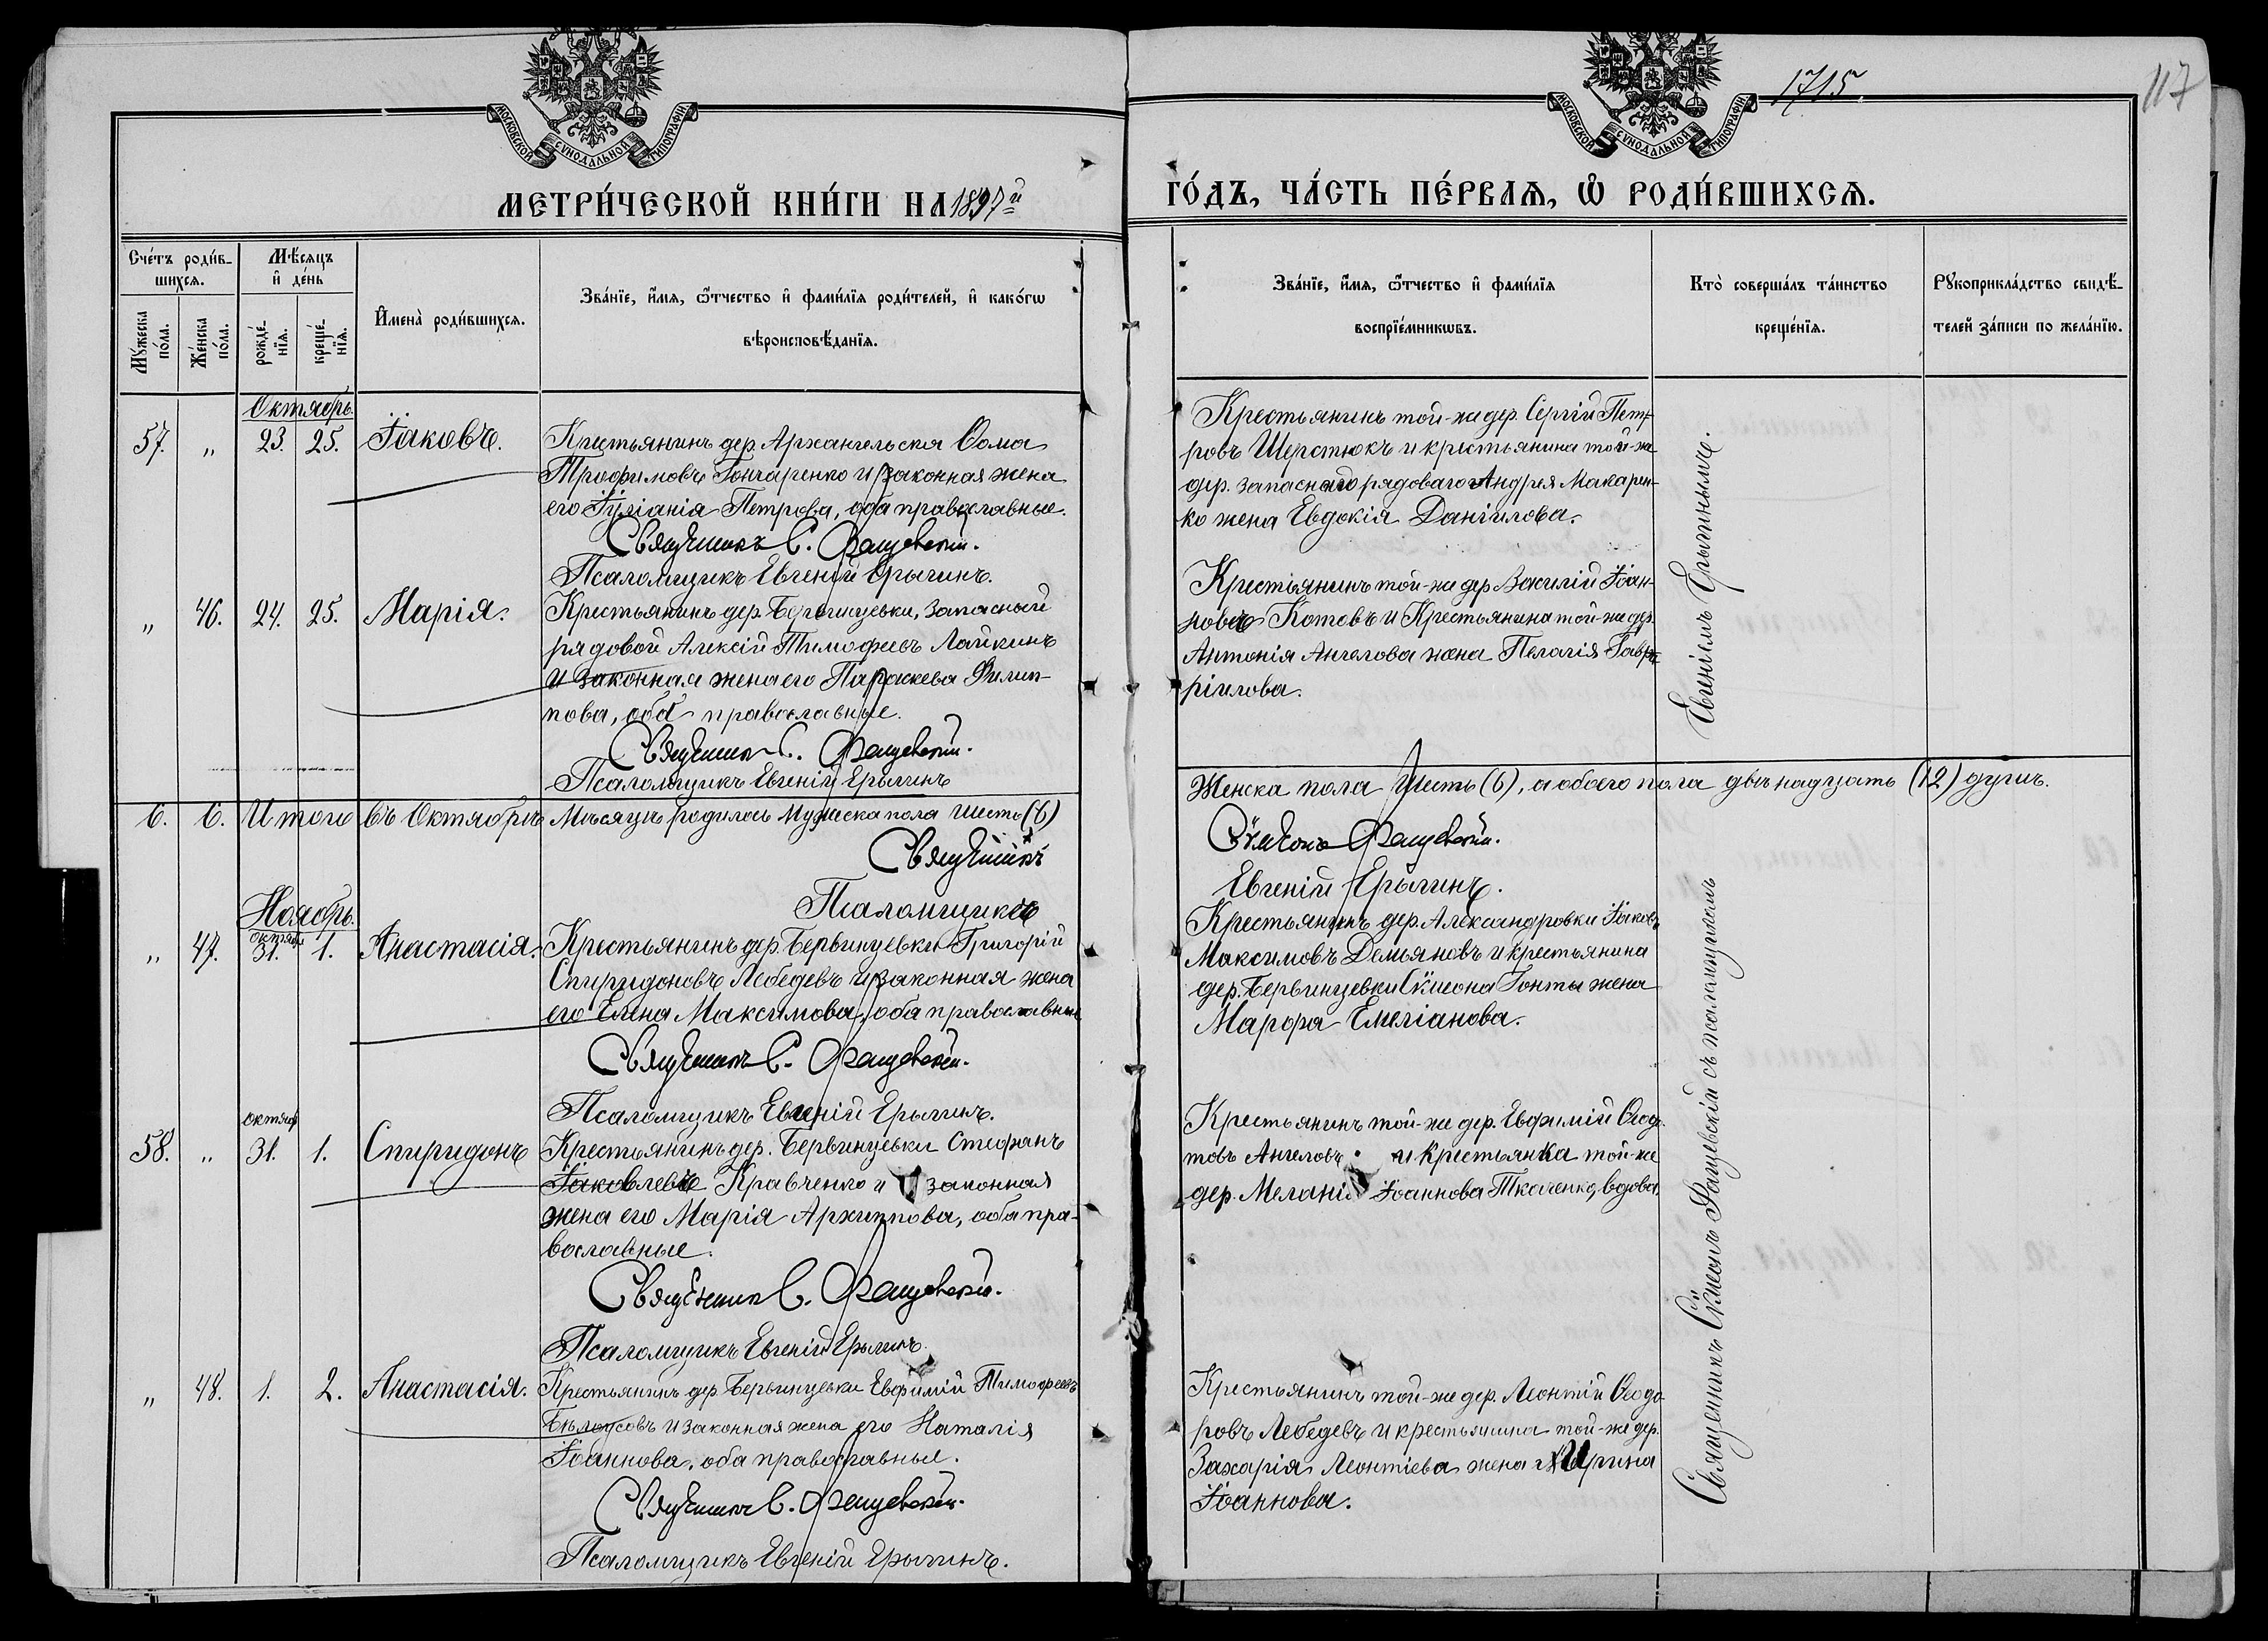 МОСКОВСКОЙ СѴНОДАЛЬНОЙ ТИПОГРАФІИ
МЕТРИ́ЧЕСКОЙ КНИ́ГИ НА 1897й
Сче́тъ роди́в-
шихсѧ.
Мꙋ́жеска
по́ла.
Же́нска
по́ла.
Мѣ́сѧцъ
и҆ де́нь
рожде́-
нїѧ.
креще́-
нїѧ.
И҆мена̀ роди́вшихсѧ.
Зва́нїе, и҆́мѧ, ѻ҆́тчество и҆ фами́лїѧ роди́телей, и҆ како́гѡ
вѣроисповѣ́данїѧ.
Октябрь.
57. „ 23. 25. Іаковъ. Крестьянинъ дер. Архангельска Ѳома
Трофимовъ Гончаренко и законная жена
его Іуліанія Петрова, оба православные.
Священникъ С. Фащевскій.
Псаломщикъ Евгеній Ерыгинъ.
„ 46. 24. 25. Марія. Крестьянинъ дер. Бервинцевки, запасный
рядовой Алексій Тимофеевъ Лайкинъ
и законная жена его Параскева Филип-
пова, оба православные.
Священникъ С. Фащевскій.
Псаломщикъ Евгеній Ерыгинъ
6. 6. Итого въ Октябрѣ Мѣсяцѣ родилось Мужеска пола шесть (6)
Священникъ
Псаломщикъ
Ноябрь.
октяб.
„ 47. 31. 1. Анастасія. Крестьянинъ дер. Бервинцевки Григорій
Спиридоновъ Лебедевъ и законная жена
его Елена Максимова, оба православные
Священникъ С. Фащевскій.
Псаломщикъ Евгеній Ерыгинъ.
октяб
58. „ 31. 1. Спиридонъ Крестьянинъ дер. Бервинцевки Стефанъ
Іаковлевъ Кравченко и законная
жена его Марія Архиппова, оба пра-
вославные.
Священникъ С. Фащевскій.
Псаломщикъ Евгеній Ерыгинъ.
„ 48. 1. 2. Анастасія. Крестьянинъ дер. Бервинцевки Евфимій Тимофеевъ
Бѣлоусовъ и законная жена его Наталія
Іоаннова, оба православные.
Священникъ С. Фащевскій.
Псаломщикъ Евгеній Ерыгинъ.
1715
117
МОСКОВСКОЙ СѴНОДАЛЬНОЙ ТИПОГРАФІИ
ГО́ДЪ, ЧА́СТЬ ПЕ́РВАѦ, Ѡ҆ РОДИ́ВШИХСѦ.
Зва́нїе, и҆́мѧ, ѻ҆́тчество и҆ фами́лїѧ
воспрїе́мникѡвъ.
Кто̀ соверша́лъ та́инство
креще́нїѧ.
Рꙋкоприкла́дство свидѣ́-
телей за́писи по жела́нїю.
Крестьянинъ той-же дер. Сергій Пет-
ровъ Шерстюкъ и крестьянина той-же
дер. запаснаго рядоваго Андрея Макарен-
ко жена Евдокія Даніилова.
Крестіянинъ той-же дер. Василій Іоан-
новъ Котовъ и Крестьянина той-же дер.
Антонія Ангелова жена Пелагія Гав-
ріилова.
Женска пола шесть (6), а обоего пола двѣнадцать (12) душъ.
Сѵмеонъ Фащевскій.
Евгеній Ерыгинъ.
Крестьянинъ дер. Александровки Іаковъ
Максимовъ Демьяновъ и крестьянина
дер. Бервинцевки Сѵмеона Гонты жена
Марфа Емеліанова.
Крестьянинъ той-же дер. Евфимій Ѳедо-
товъ Ангеловъ и Крестьянка той-же
дер. Меланія Іоаннова Ткаченко, вдова.
Крестьянинъ той-же дер. Леонтій Ѳеодо-
ровъ Лебедевъ и крестьянина той-же дер.
Захарія Леонтіева жена Ирина
Іоаннова.
Священникъ Сѵмеонъ Фащевскій съ псаломщикомъ
Евгеніемъ Ерыгинымъ.